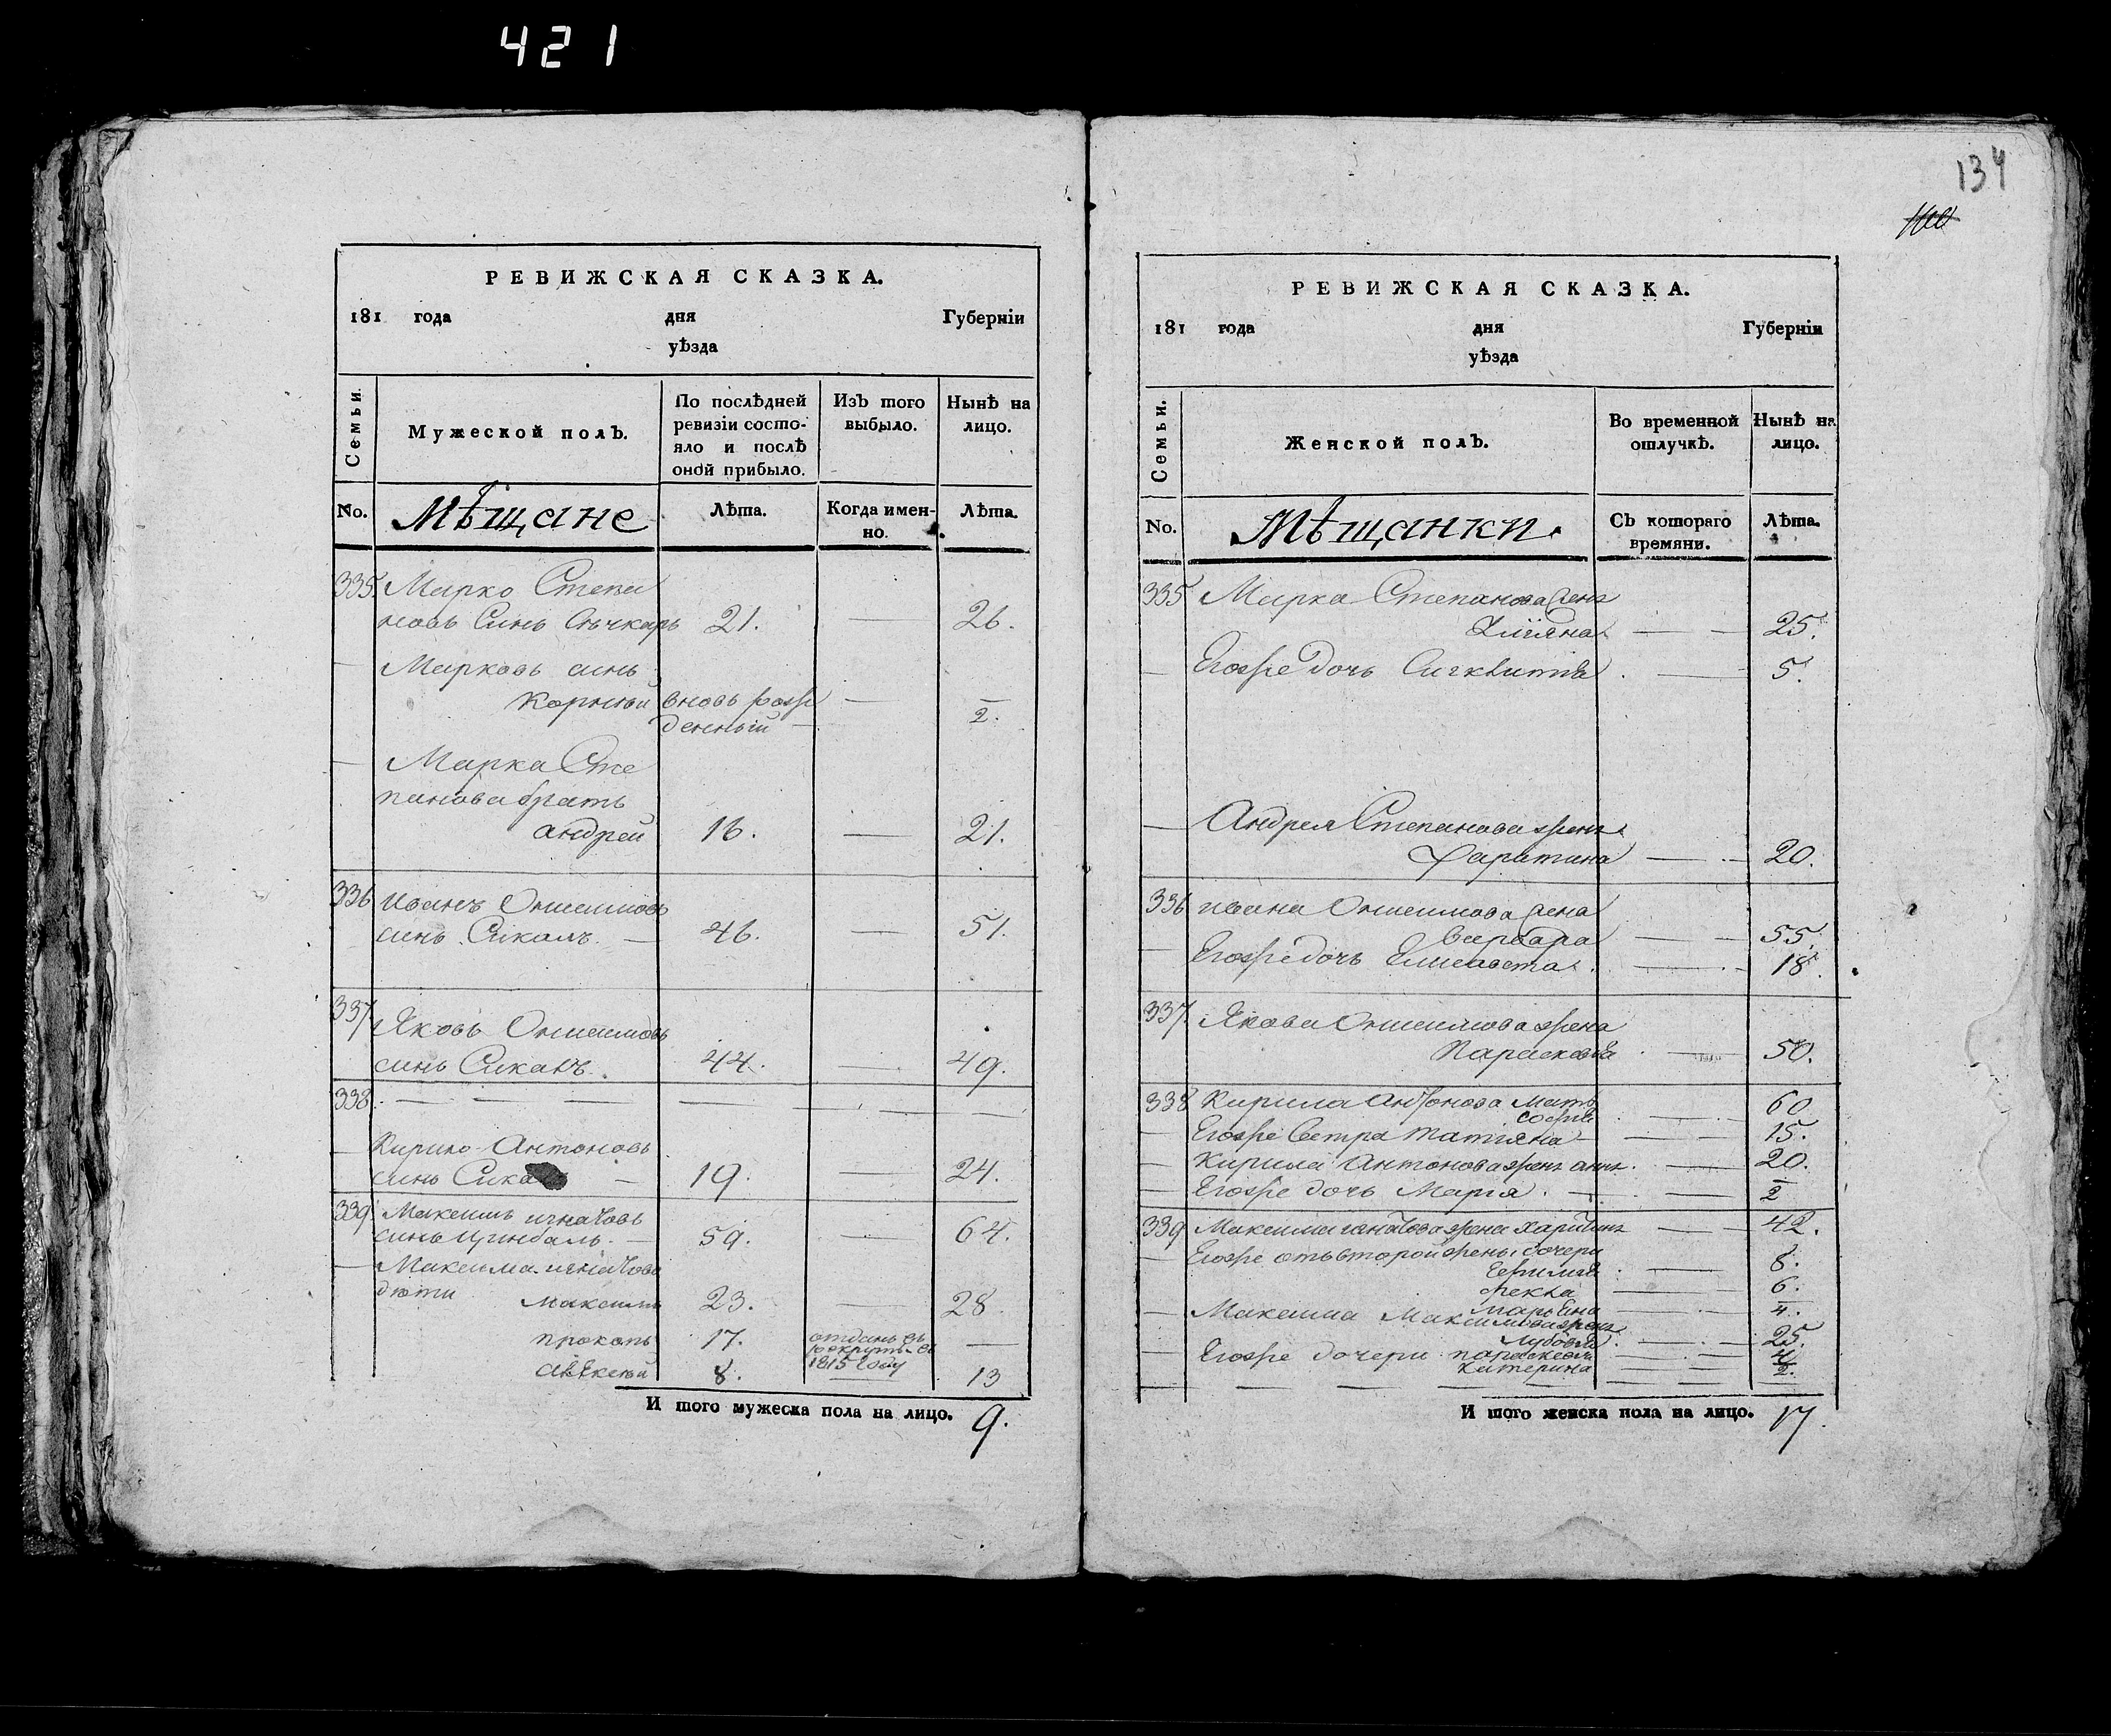 421
РЕВИЖСКАЯ СКАЗКА.
181 года дня Губерніи
уѣзда
Семьи.
Мужеской полъ.
По послѣдней ревизіи состо-
яло и послѣ оной прибыло.
Изъ того выбыло.
Нынѣ на лицо.
No. Мѣщане Лѣта. Когда имен-
но. Лѣта.
335. Марко Степа
новъ Синъ 21. — 26.
— Марковъ синъ
Корнѣй вновь рож
денный — 1/2.
— Марка Сте
панова братъ
андрей 16. — 21.
336 Иванъ Онисимовъ
синъ 46. — 51.
337 Яковъ Онисимовъ
синъ 44. — 49.
338. — — — —
— Кирило Антоновъ
синъ 19. — 24.
339. Максимъ игнатовъ
синъ Цимбалъ. 59. — 64.
— Максима игнатова
дѣти Максимъ 23. — 28
прокопъ 17. отданъ въ
рекруты въ
1815 году —
8. — 13
И того мужеска пола на лицо. 9.
134
РЕВИЖСКАЯ СКАЗКА.
181 года дня Губерніи
уѣзда
Семьи.
Женской полъ.
Во временной отлучкѣ.
Нынѣ на лицо.
No. Мѣщанки. Съ котораго
времяни. Лѣта.
335 Марка Степанова жена
Улияна — 25.
— Егожъ дочь — 5.
— Андрея Степанова жена
— 20.
336 ивана Онисимова жена
варвара — 55.
— Егожъ дочь Елисавета. — 18.
337. Якова Онисимова жена
Парасковія — 50.
338 Кирила антонова мать
софія — 60
— Егожъ Сестра татияна — 15.
— Кирила антонова жена анна. — 20.
— Егожъ дочь Марія. — 1/2
339 Максима игнатова жена харитина — 42.
— Егожъ отъ второй жены дочери
— 8.
фекла — 6.
— 4.
— Максима Максимова жена
— 25.
— Егожъ дочери параскевія — 4
катерина — 1/2.
И того женска пола на лицо. 17.